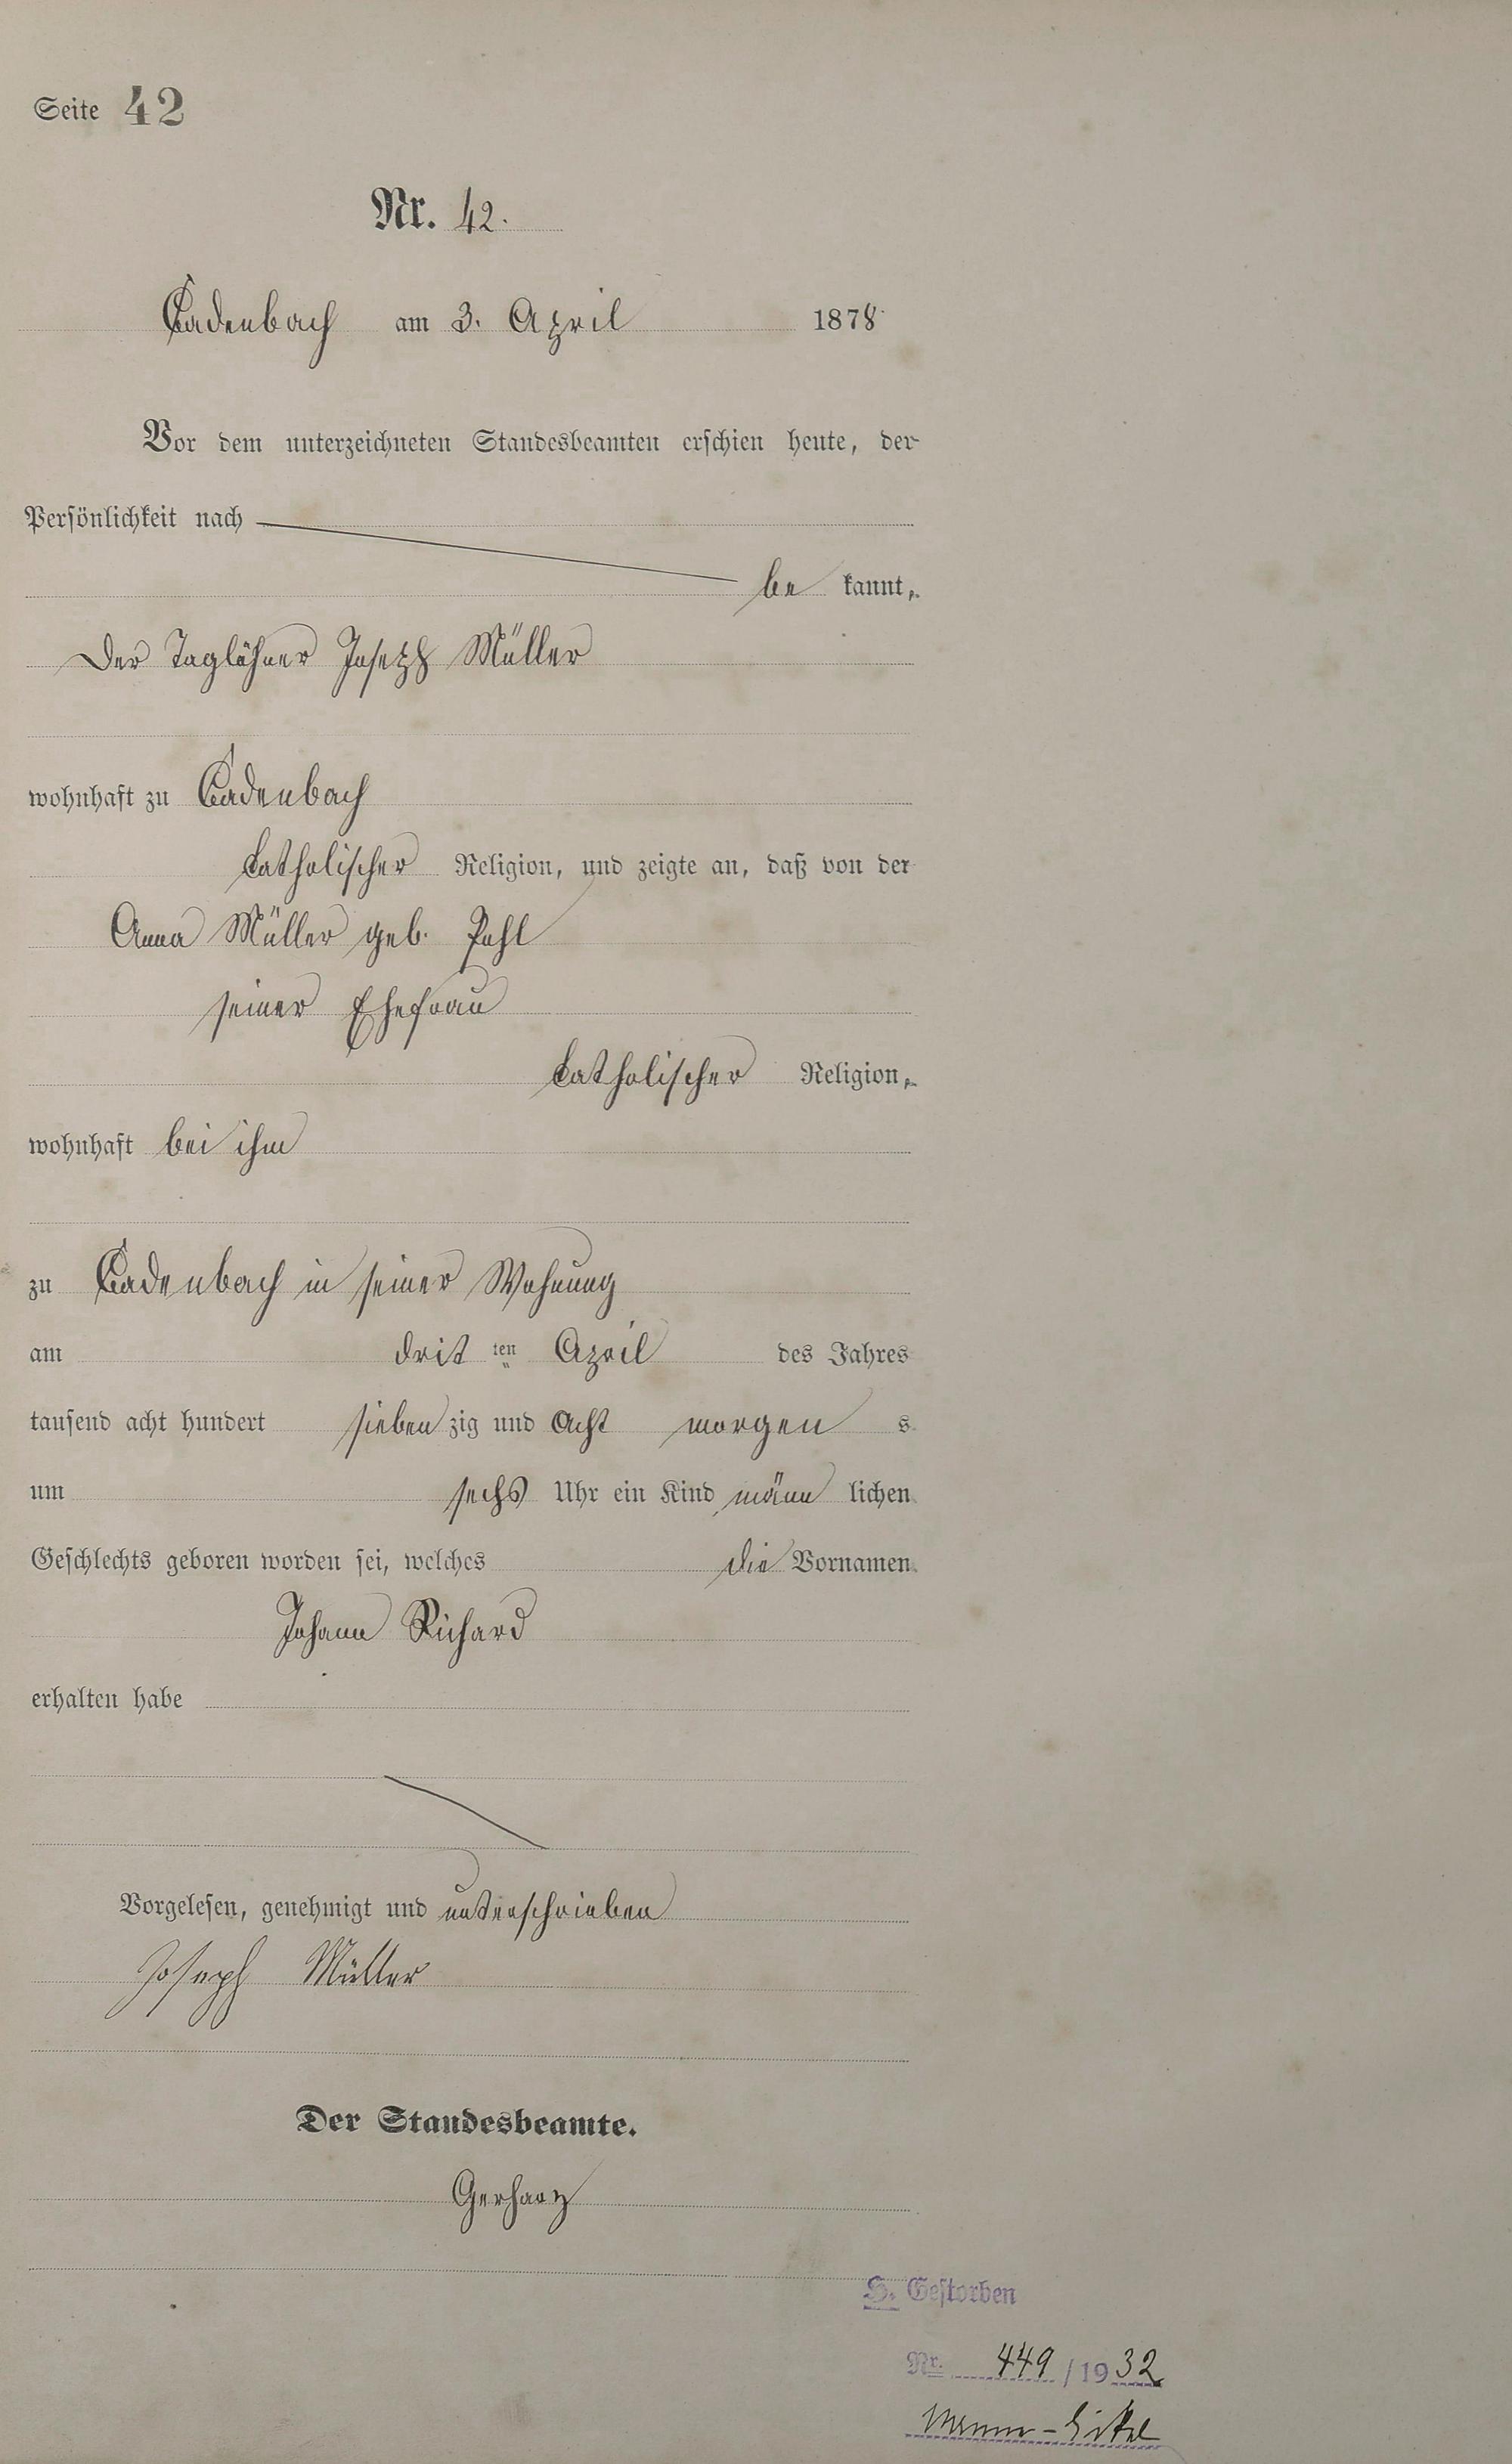 Seite 42
Nr. 42.
Cadenbach am 3. April 1878
Vor dem unterzeichneten Standesbeamten erschien heute, der
Persönlichkeit nach
be kannt,
Der Taglöhner Joseph Müller
wohnhaft zu Cadenbach
katholischer Religion, und zeigte an, daß von der
Anna Müller geb. Pehl
seiner Ehefrau
katholischer Religion,
wohnhaft bei ihm
zu Cadenbach in seiner Wohnung
am drit ten April des Jahres
tausend acht hundert sieben zig und acht morgen s
um sechs Uhr ein Kind männ lichen
Geschlechts geboren worden sei, welches die Vornamen
Johann Richard
erhalten habe
Vorgelesen, genehmigt und unterschrieben
Joseph Müller
Der Standesbeamte.
Gerharz
S. Gestorben
Nr. 449 / 1932
Wanne-Eickel